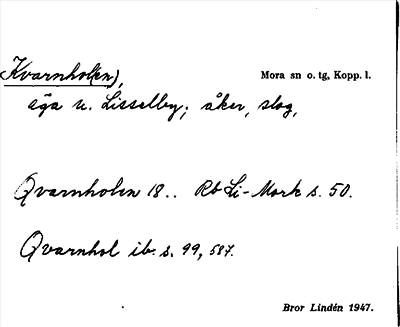 Kvarnhol(en), Mora sn o. tg, Kopp. l.
äga u. Lisselby; åker, slog,
Qvarnholen 18.. Rb Li-Mork s. 50.
Qvarnhol ib. s. 99, 587.
Bror Lindén 1947.